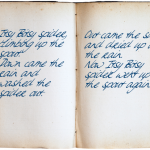 Itsy Bitsy spider,
climbing up the
spout
Down came the
rain and
washed the
spider out
Out came the s
and dried up a
the rain
Now Itsy Bitsy
spider went up
the spout again